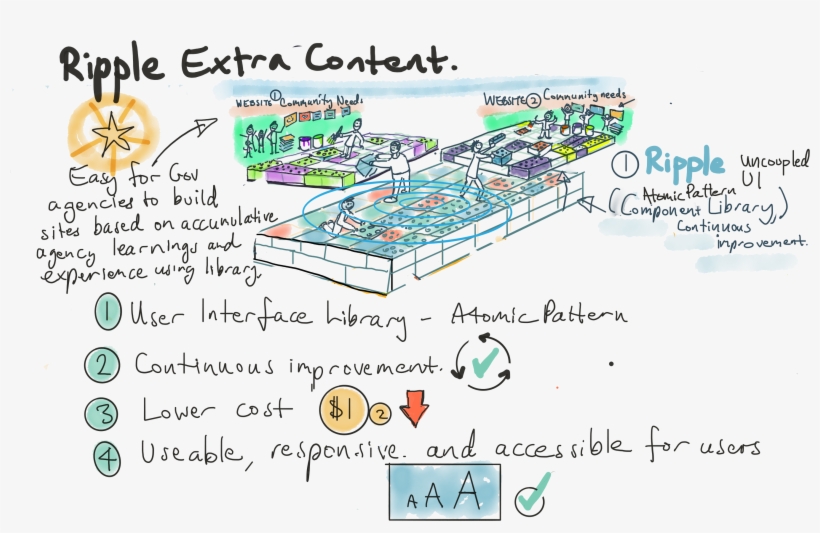 Ripple Extra Content.
WEBSITE ① Community Needs
WEBSITE ② Community needs
Easy for Gov
agencies to build
sites based on accumulative
agency learnings and
experience using library.
① Ripple Uncoupled
UI
(Atomic Pattern
Component Library,)
Continuous
improvement.
① User Interface Library - Atomic Pattern
② Continuous improvement.
③ Lower cost $1 2
④ Useable, responsive. and accessible for users
A A A